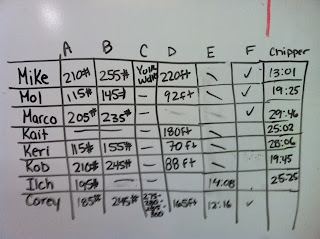 A B C D E F Chipper
Mike 210# 255# Yolk 220ft \ ✓ 13:01
Mol 115# 145# — 92ft \ ✓ 19:25
Marco 205# 235# — — \ ✓ 29:46
Kait — — — 130ft \ 25:02
Keri 115# 155# — 70ft \ 28:06
Rob 210# 245# — 88ft \ 19:45
Ilch 195# — — 14:08 25:25
Corey 185# 245# 275- 165ft 12:16 ✓